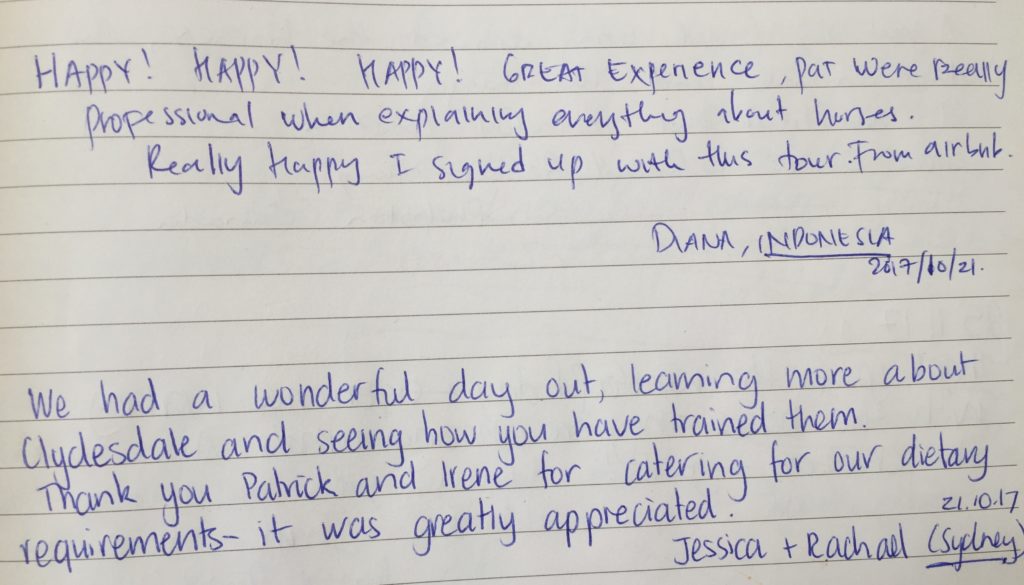 HAPPY! HAPPY! HAPPY! GREAT Experience, pat were Really
professional when explaining everything about horses.
Really Happy I signed up with this tour. From airbnb.
DIANA, INDONESIA
2017/10/21.
We had a wonderful day out, learning more about
Clydesdale and seeing how you have trained them.
Thank you Patrick and Irene for catering for our dietary
requirements - it was greatly appreciated.
21.10.17
Jessica + Rachael (Sydney)